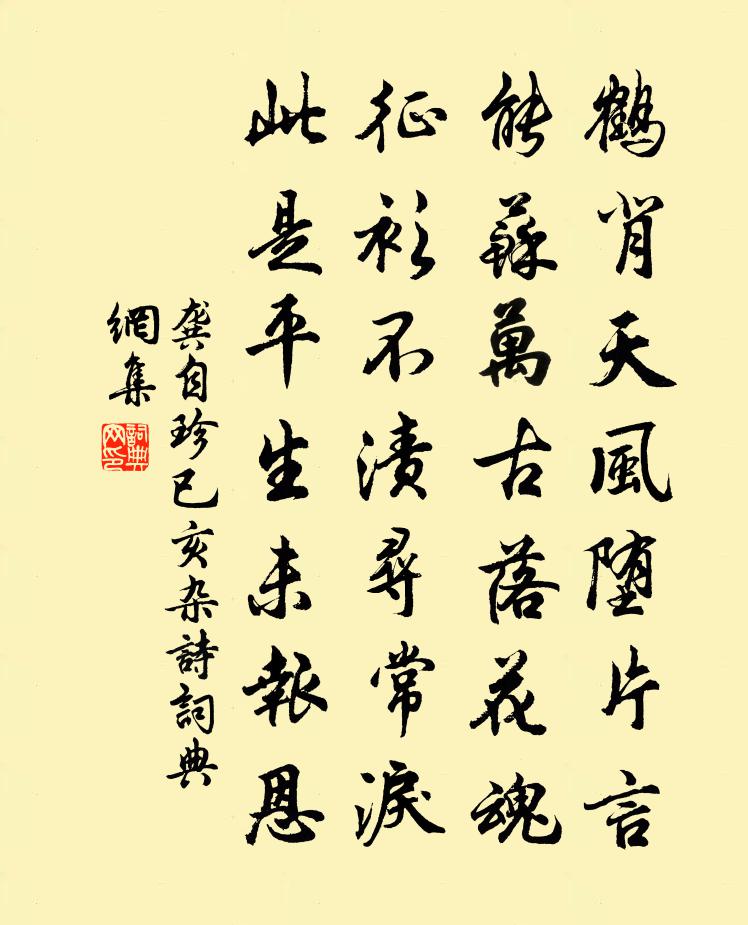 鶴背天風墮片言
能蘇萬古落花魂
征衫不漬尋常淚
此是平生未報恩
龔自珍已亥杂詩詞典
網集
詞典
网印